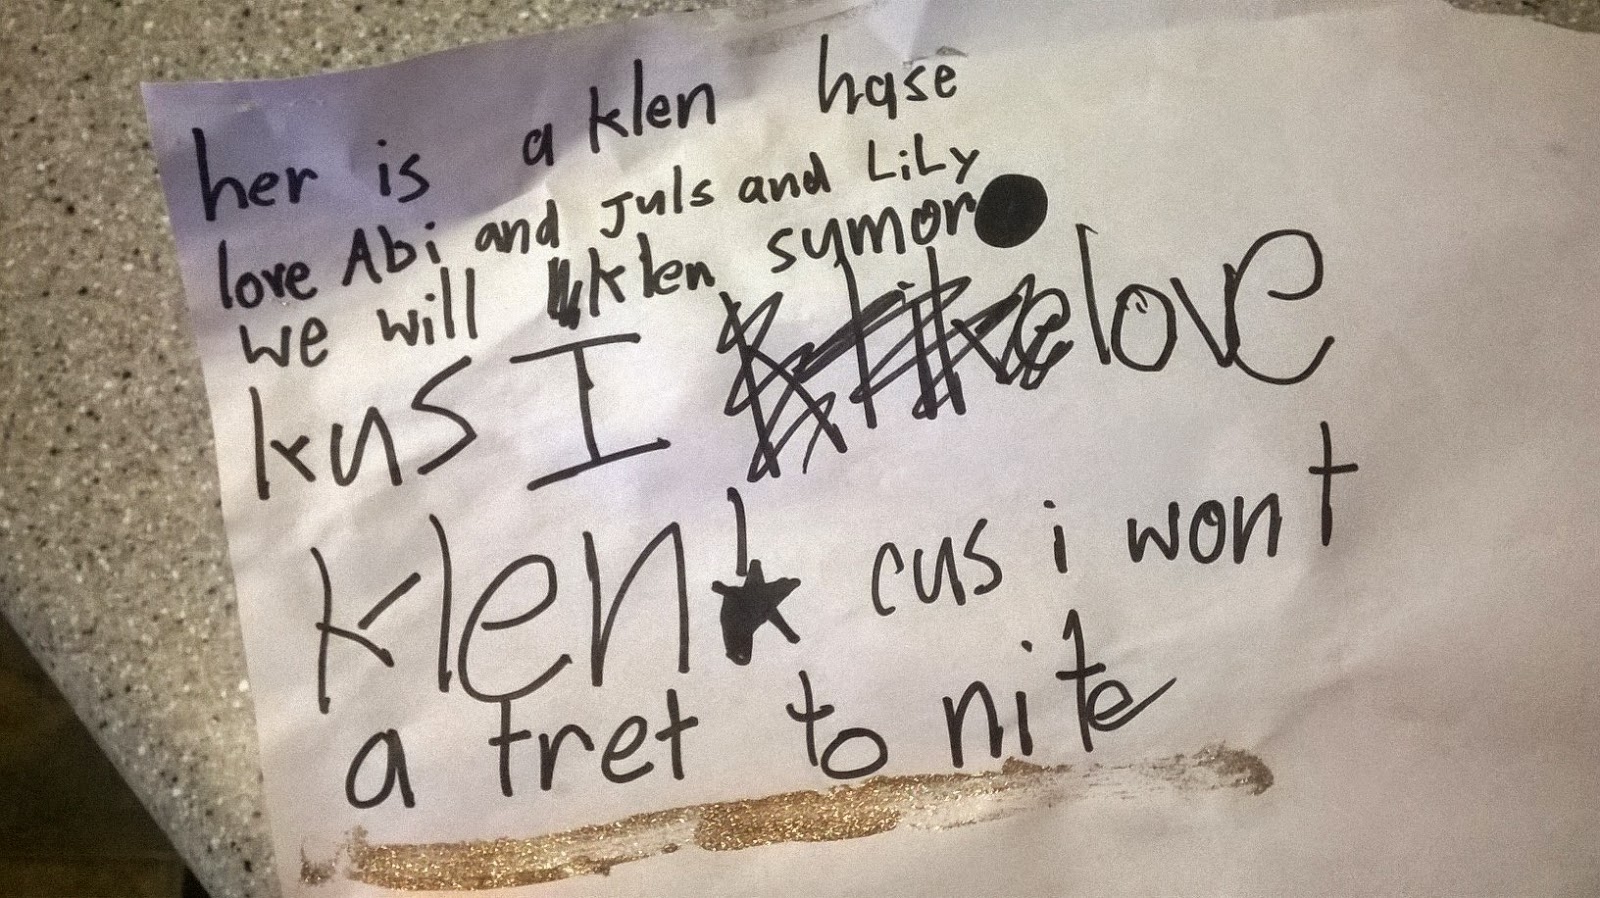 her is a klen hase
love Abi and Juls and LiLy
we will klen symor
kus I love
klen! cus i wont
a tret to nite